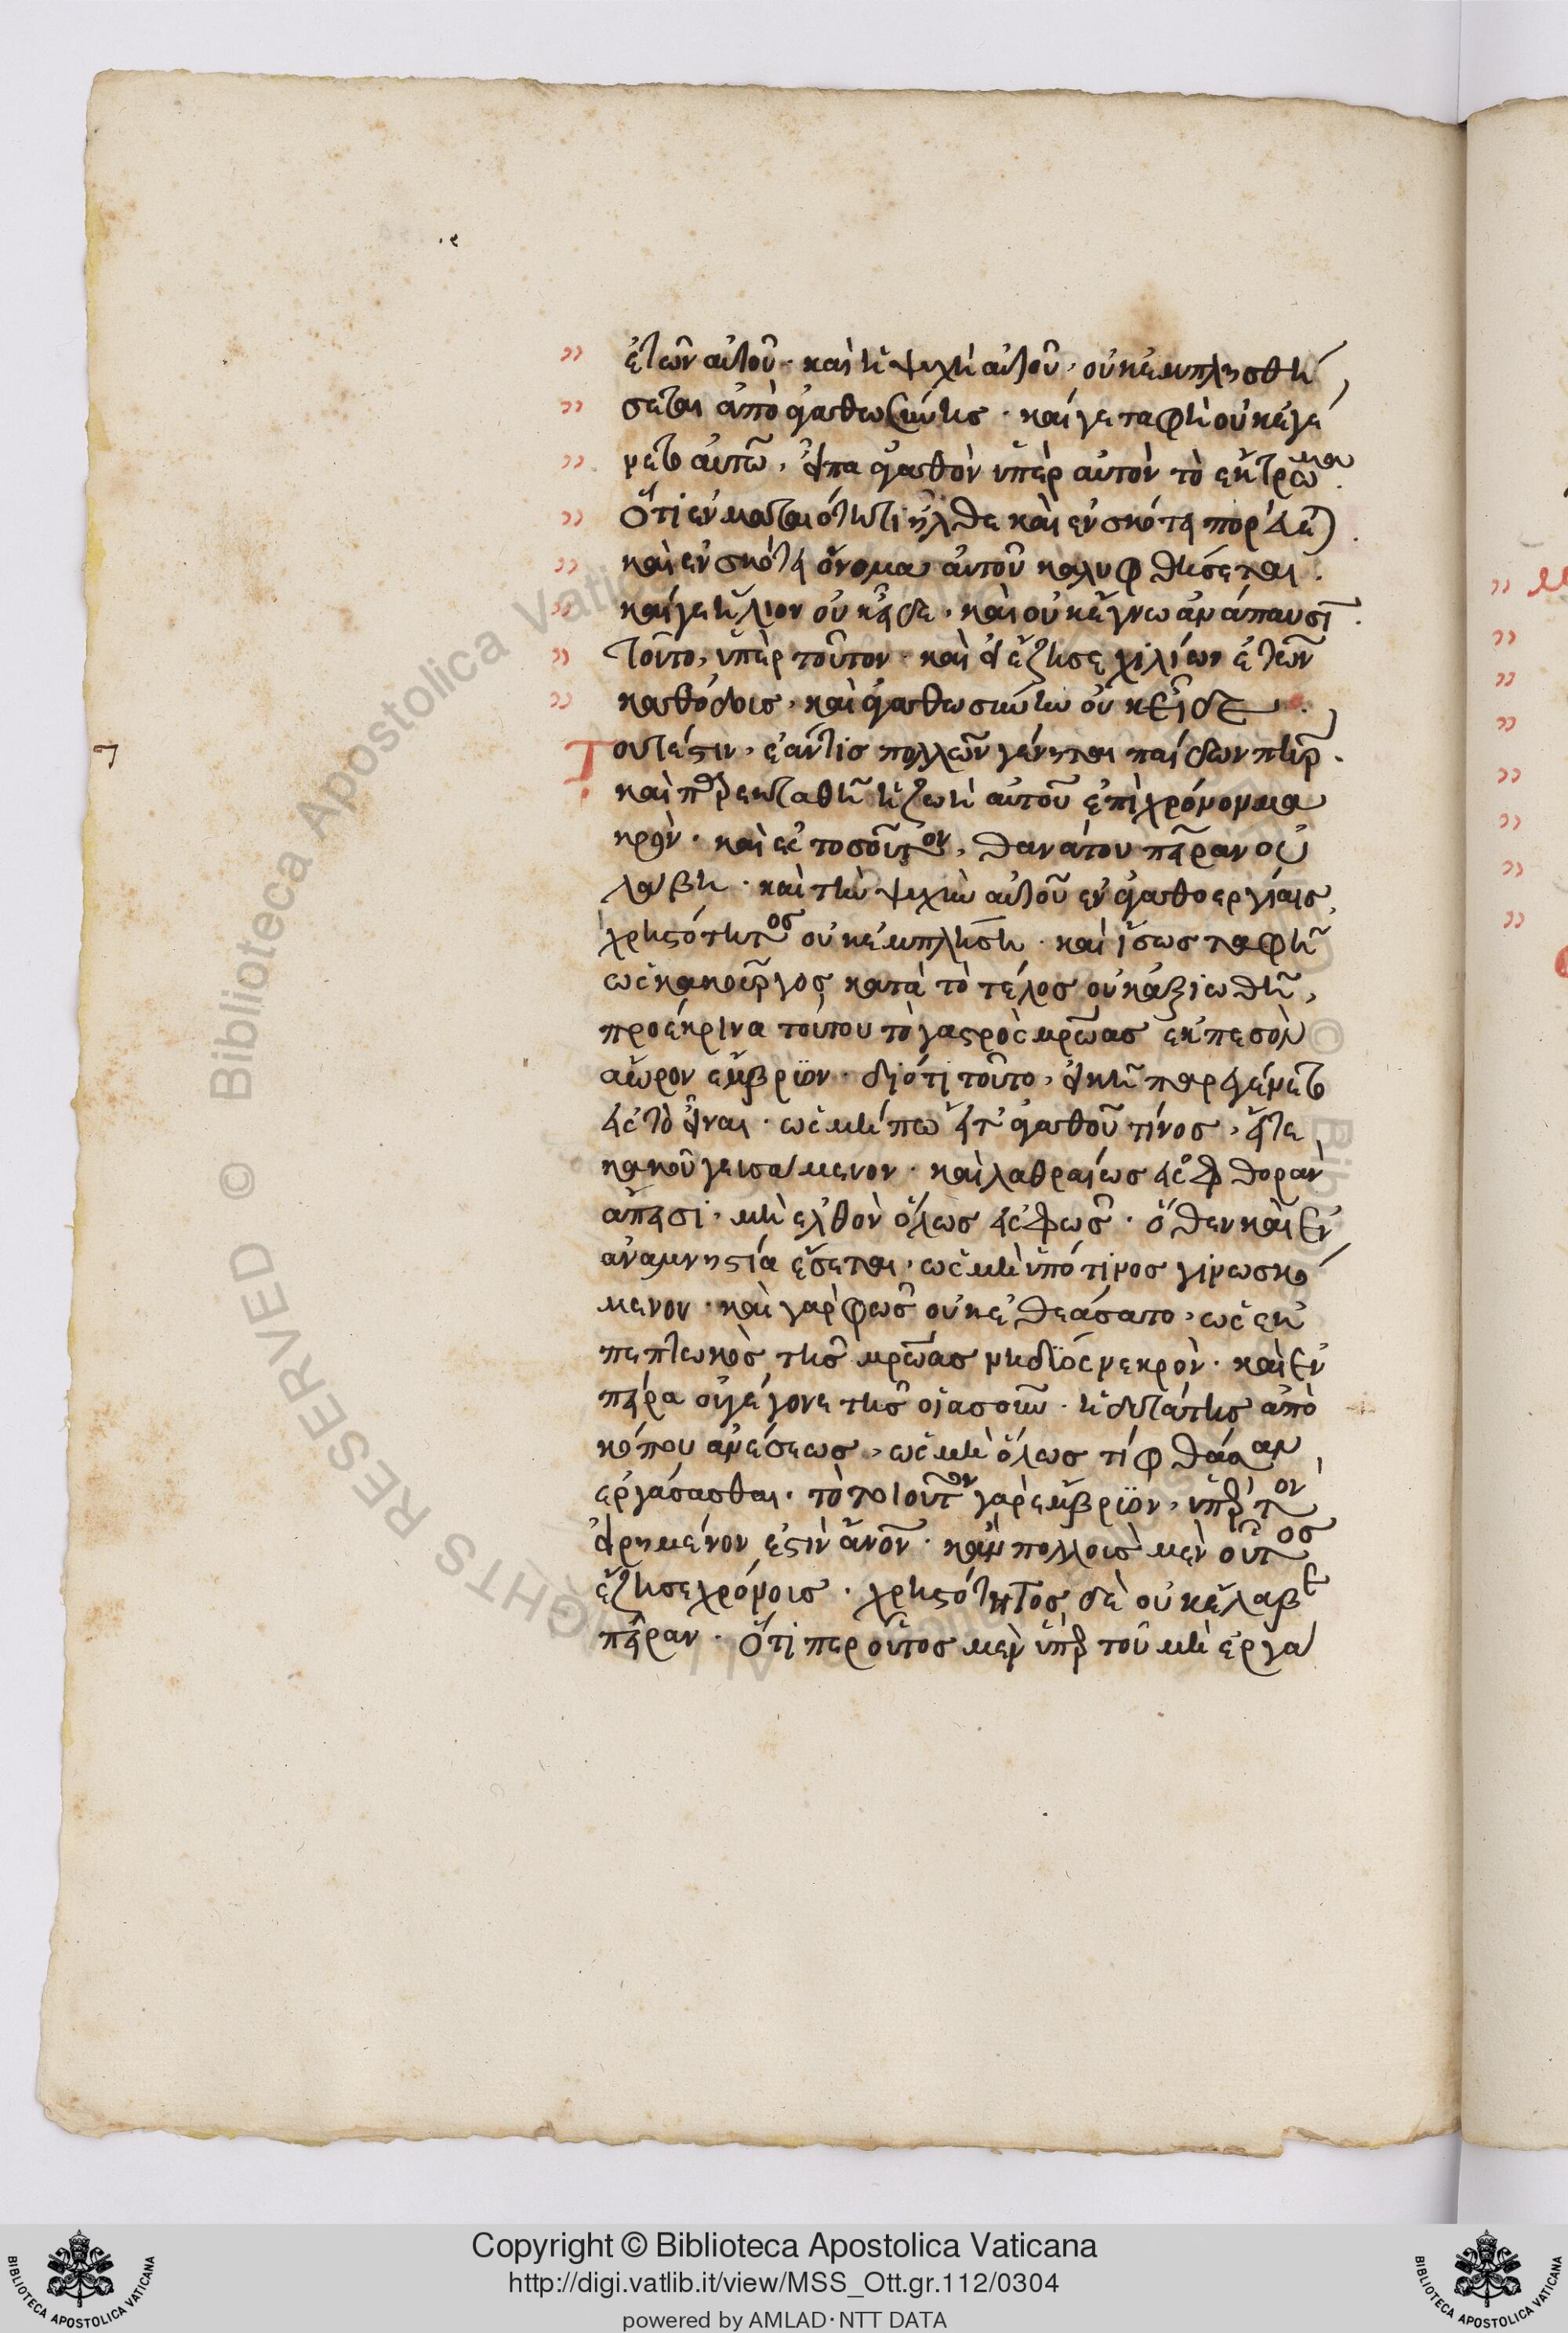 ἐτῶν αὐτοῦ· καὶ ἡ ψυχὴ αὐτοῦ, οὐκ ἐμπλησθή
σεται ἀπὸ ἀγαθωσύνης· καί γε ταφὴ οὐκ ἐγέ
νετο αὐτῶ, εἶπα ἀγαθὸν ὑπὲρ αὐτὸν τὸ ἔκτρωμα.
Ὅτι ἐν ματαιότητι ἦλθε καὶ ἐν σκότει πορεύε)
καὶ ἐν σκότει ὄνομα αὐτοῦ καλυφθήσεται.
καί γε ἥλιον οὐκ εἶδε· καὶ οὐκ ἔγνω ἀνάπαυσι̅.
τοῦτο, ὑπὲρ τοῦτον· καὶ εἰ ἔζησε χιλίων ἐτῶν
καθόδοις, καὶ ἀγαθωσύνην οὐκ εἶδε.
Τουτέστιν, ἐάν τις πολλῶν γένηται παίδων πηρ.
καὶ παρεκταθῆ ἡ ζωὴ αὐτοῦ ἐπὶ χρόνον μα
κρὸν· καὶ ἐς τοσοῦτον, θανάτου πεῖραν οὐ
λάβη· καὶ τὴν ψυχὴν αὐτοῦ ἐν ἀγαθοεργίαις
χρηστότητος οὐκ ἐμπλήση· καὶ ἴσως ταφῆ
ὡς κακοῦργος κατὰ τὸ τέλος οὐκ ἀξιωθῆ,
προέκρινα τούτου τὸ γαστρὸς μρῶας ἐκπεσὸν
ἄωρον ἔμβρϊον· διότι τοῦτο, εἰκῆ παρεγένετο
εἰς τὸ εἶναι· ὡς μήπω εἴτ' ἀγαθοῦ τίνος, εἴτε
κακοῦ γευσάμενον· καὶ λαθραίως εἰς φθορὰν
ἄπεισι, μὴ ἐλθὸν ὅλως εἰς φῶς· ὅθεν καὶ ἐν
ἀναμνηστία ἔσεται, ὡς μὴ ὑπό τινος γινωσκό
μενον· καὶ γὰρ φῶς οὐκ ἐθεάσατο, ὡς ἐκ
πεπτωκὸς τῆς μρῶας νηδϊὸς νεκρὸν· καὶ ἐν
πείρα οὐ γέγονε τῆς οἱασοῦν
κόπου ἀνέσεως, ὡς μὴ ὅλως τί φθάσαν
ἐργάσασθαι· τὸ τοιοῦτον γὰρ ἔμβρϊον, ὑπὲρ τὸν
εἰρημένον ἐστὶν ἄνον· κἂν πολλοῖς μὲν οὗτος
ἔζησε χρόνοις· χρηστότητος δὲ οὐκ ἔλαβε
πεῖραν· Ὅτι περ οὗτος μὲν ὑπὲρ τοῦ μὴ ἐργά
Copyright © Biblioteca Apostolica Vaticana
http://digi.vatlib.it/view/MSS_Ott.gr.112/0304
powered by AMLAD·NTT DATA